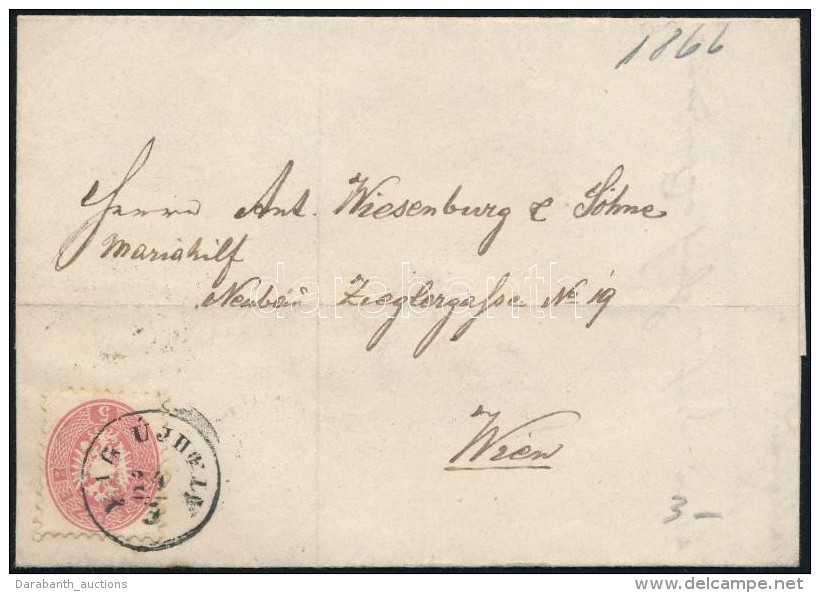 1866
Herrn Ant. Wiesenburg & Söhne
Mariahilf
Neubau Zieglergasse No 19
darabanth
Wien
ÚJHELY
3 –
5
Darabanth_auctions
www.delcampe.net